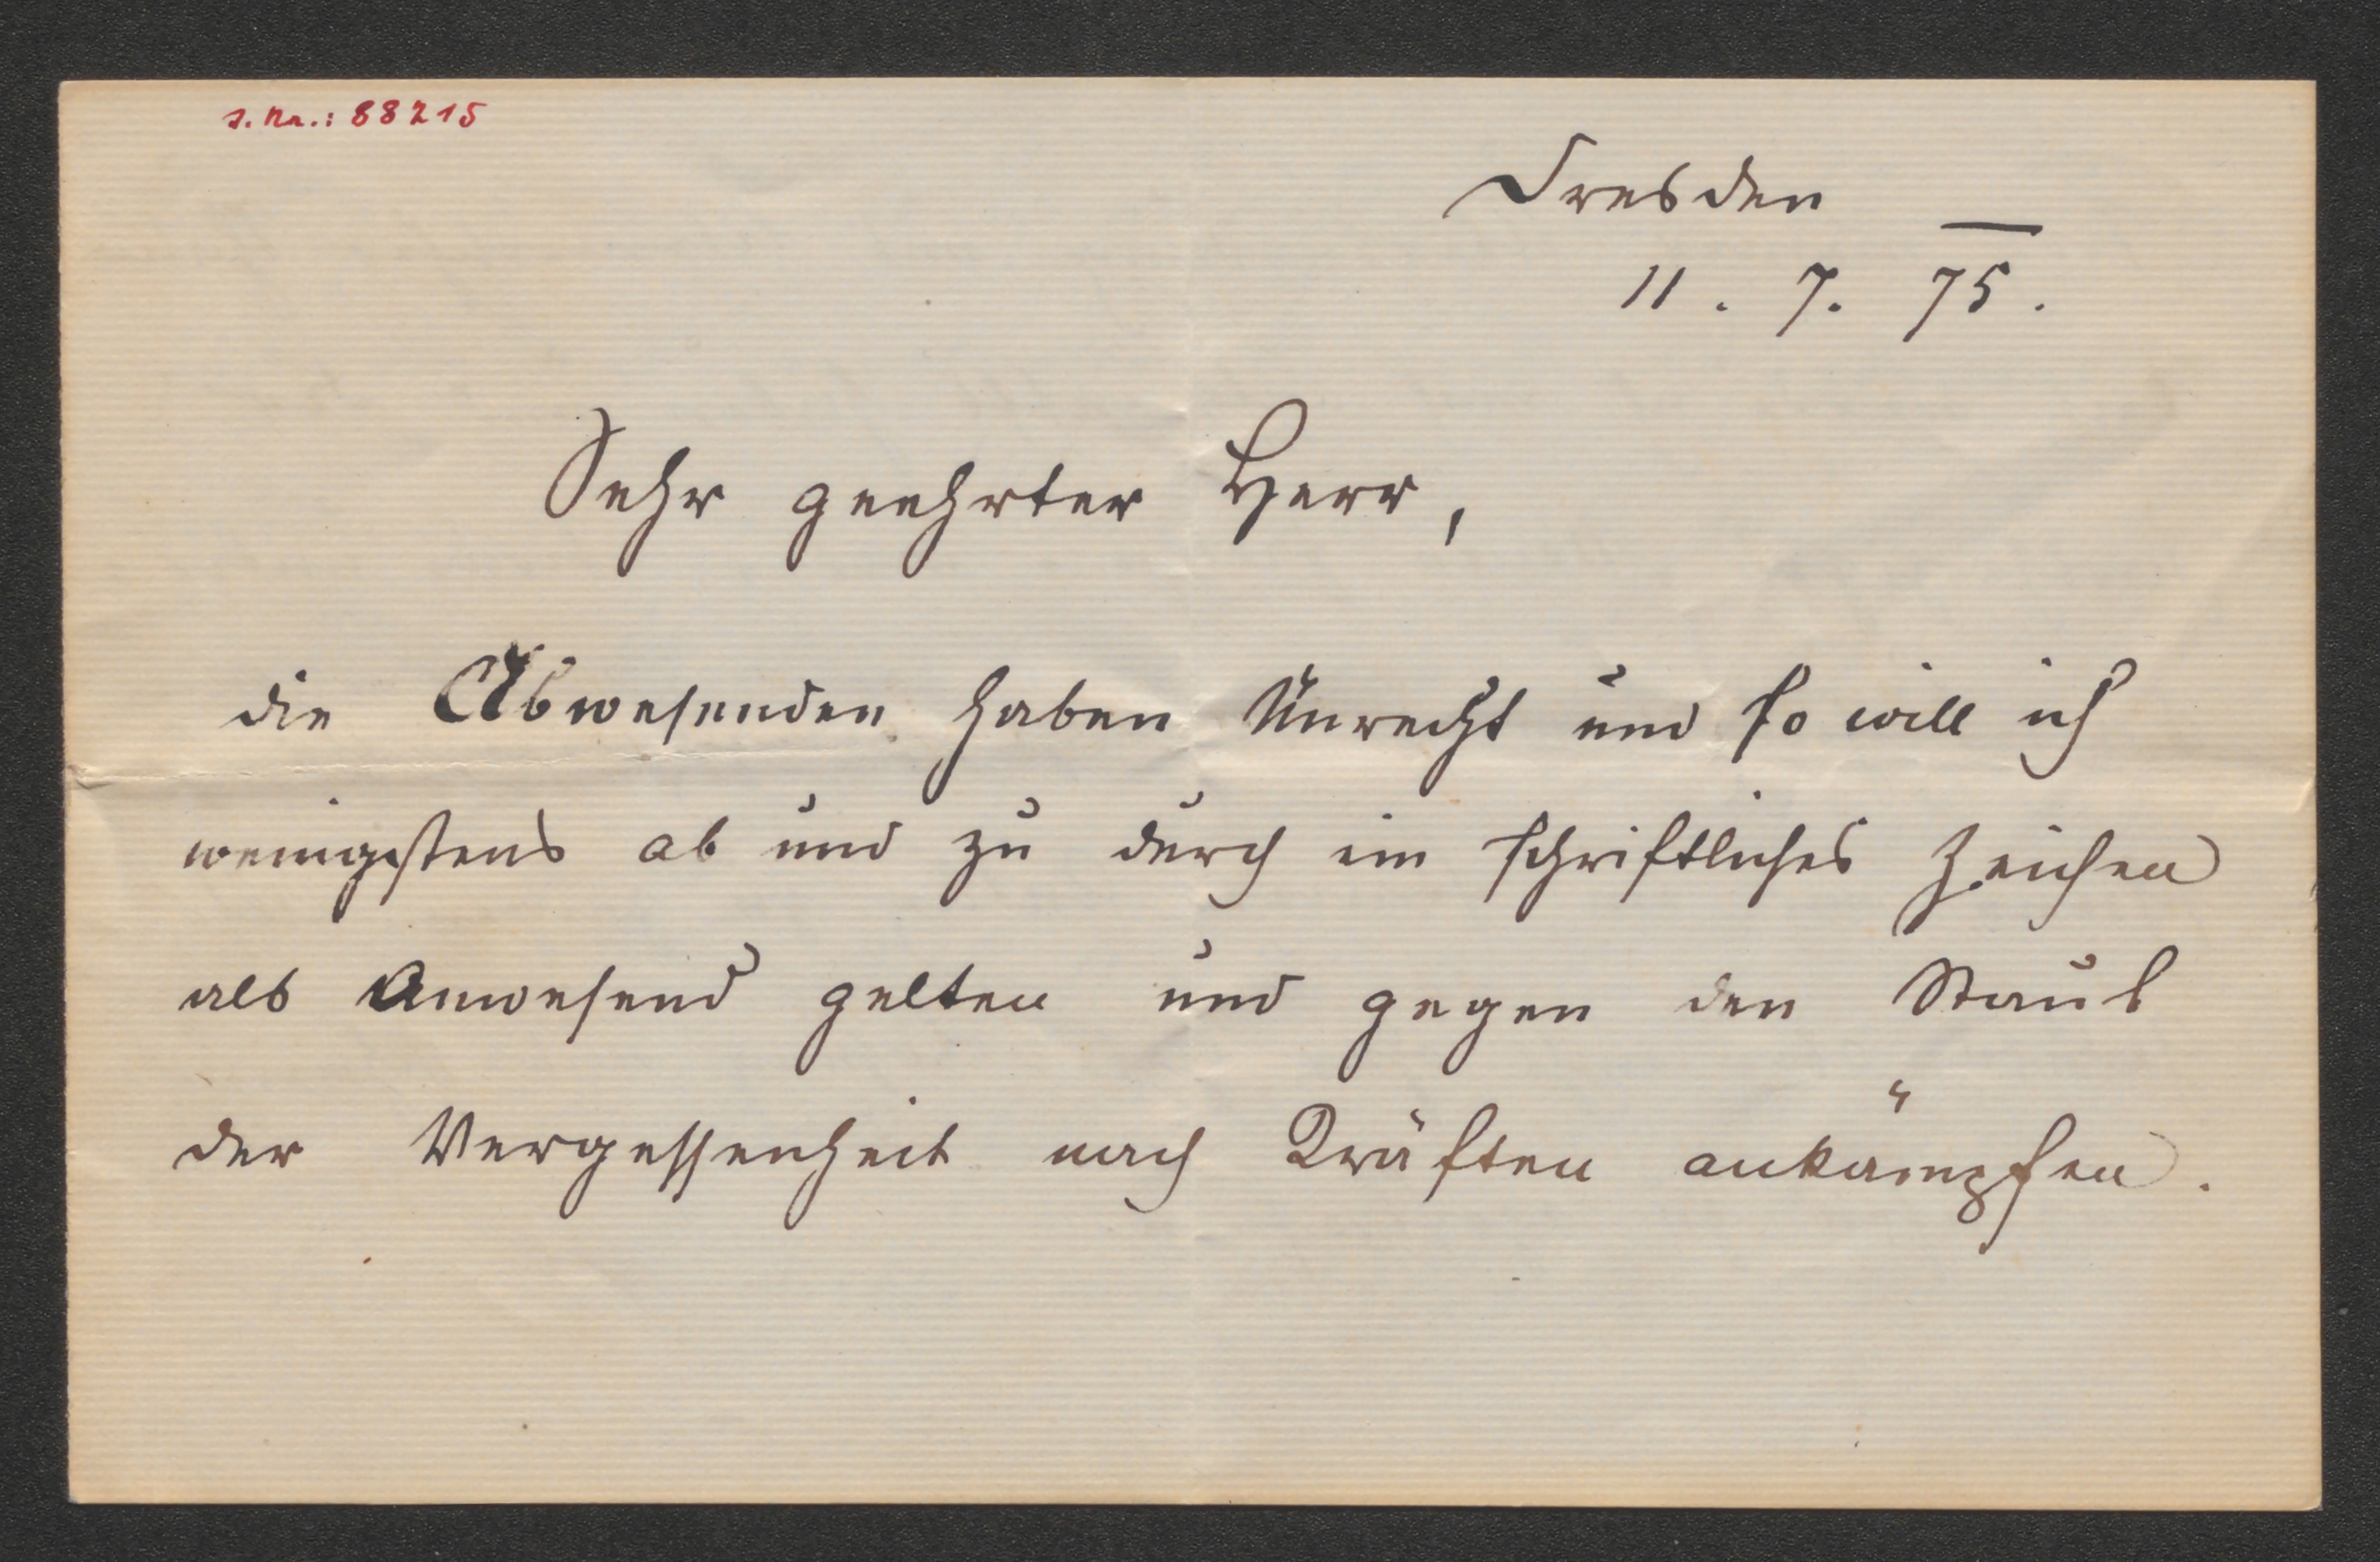 J. Nr.: 88215
Dresden
11. 7. 75.
Sehr geehrter Herr,
die Abwesenden haben Unrecht und so will ich
wenigstens ab und zu durch ein schriftliches Zeichen
als Anwesend gelten und gegen den Staub
der Vergessenheit nach Kräften ankämpfen.